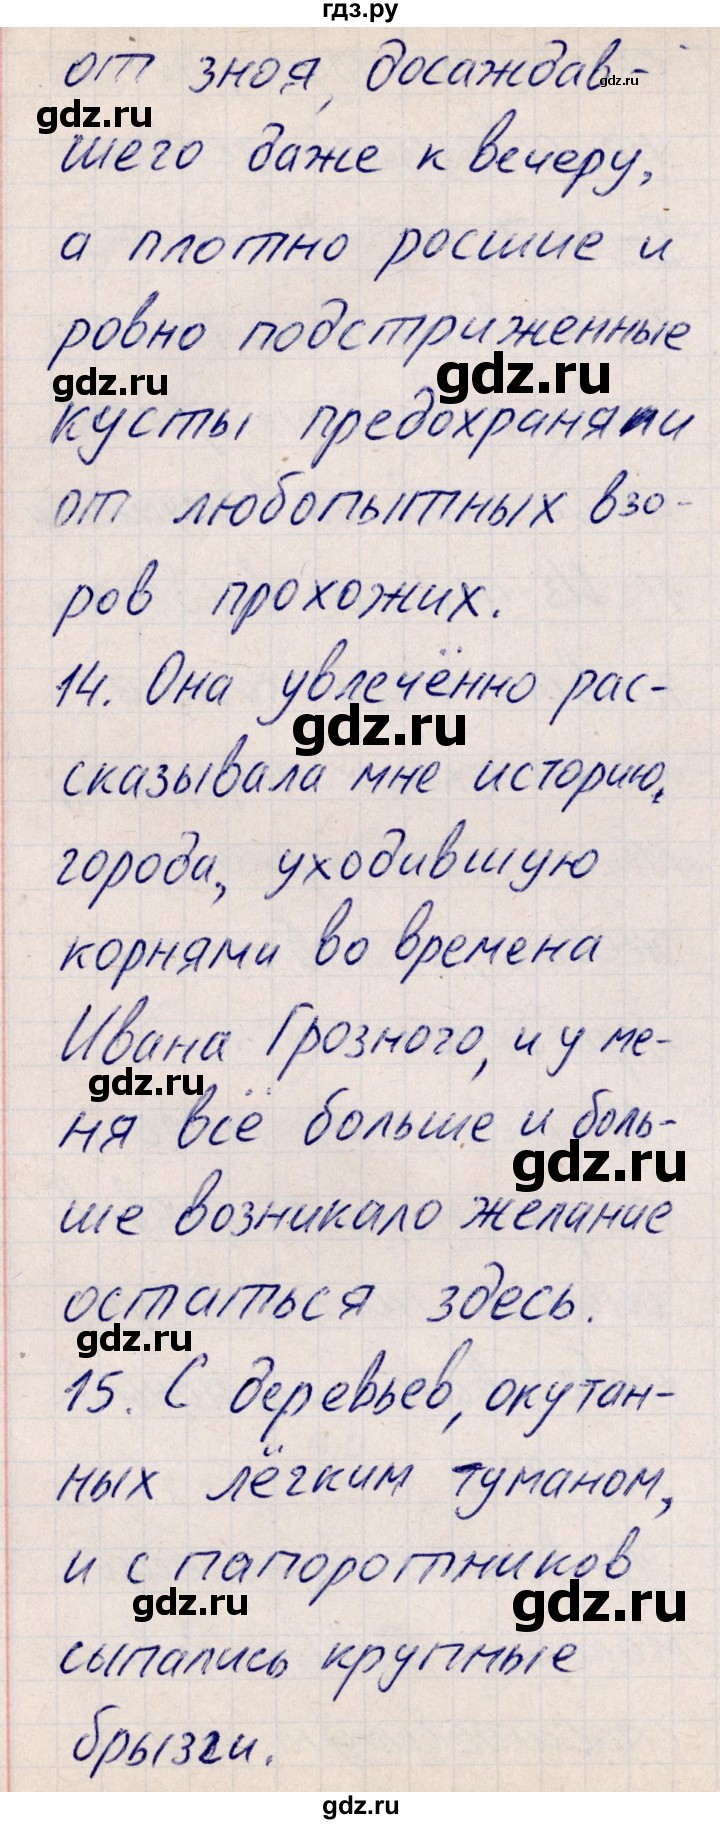 гдз.ру
от зноя, досаждав-
gdz.ru
gdz.ru
шего даже к вечеру,
а плотно росшие и
ровно подстриженные
gdz.ru
gdz.ru
кусты предохраняли
от любопытных взо-
ров прохожих.
14. Она увлечённо рас-
gdz.ru
сказывала мне историю
города, уходившую
корнями во времена
Ивана Грозного, и у ме-
gdz.ru
ня всё больше и боль-
gdz.ru
ше возникало желание
остаться здесь.
gdz.ru
15. С деревьев, окутан-
ных лёгким туманом,
и с папоротников
gdz.ru
gdz.ru
сыпались крупные
брызги.
gdz.ru